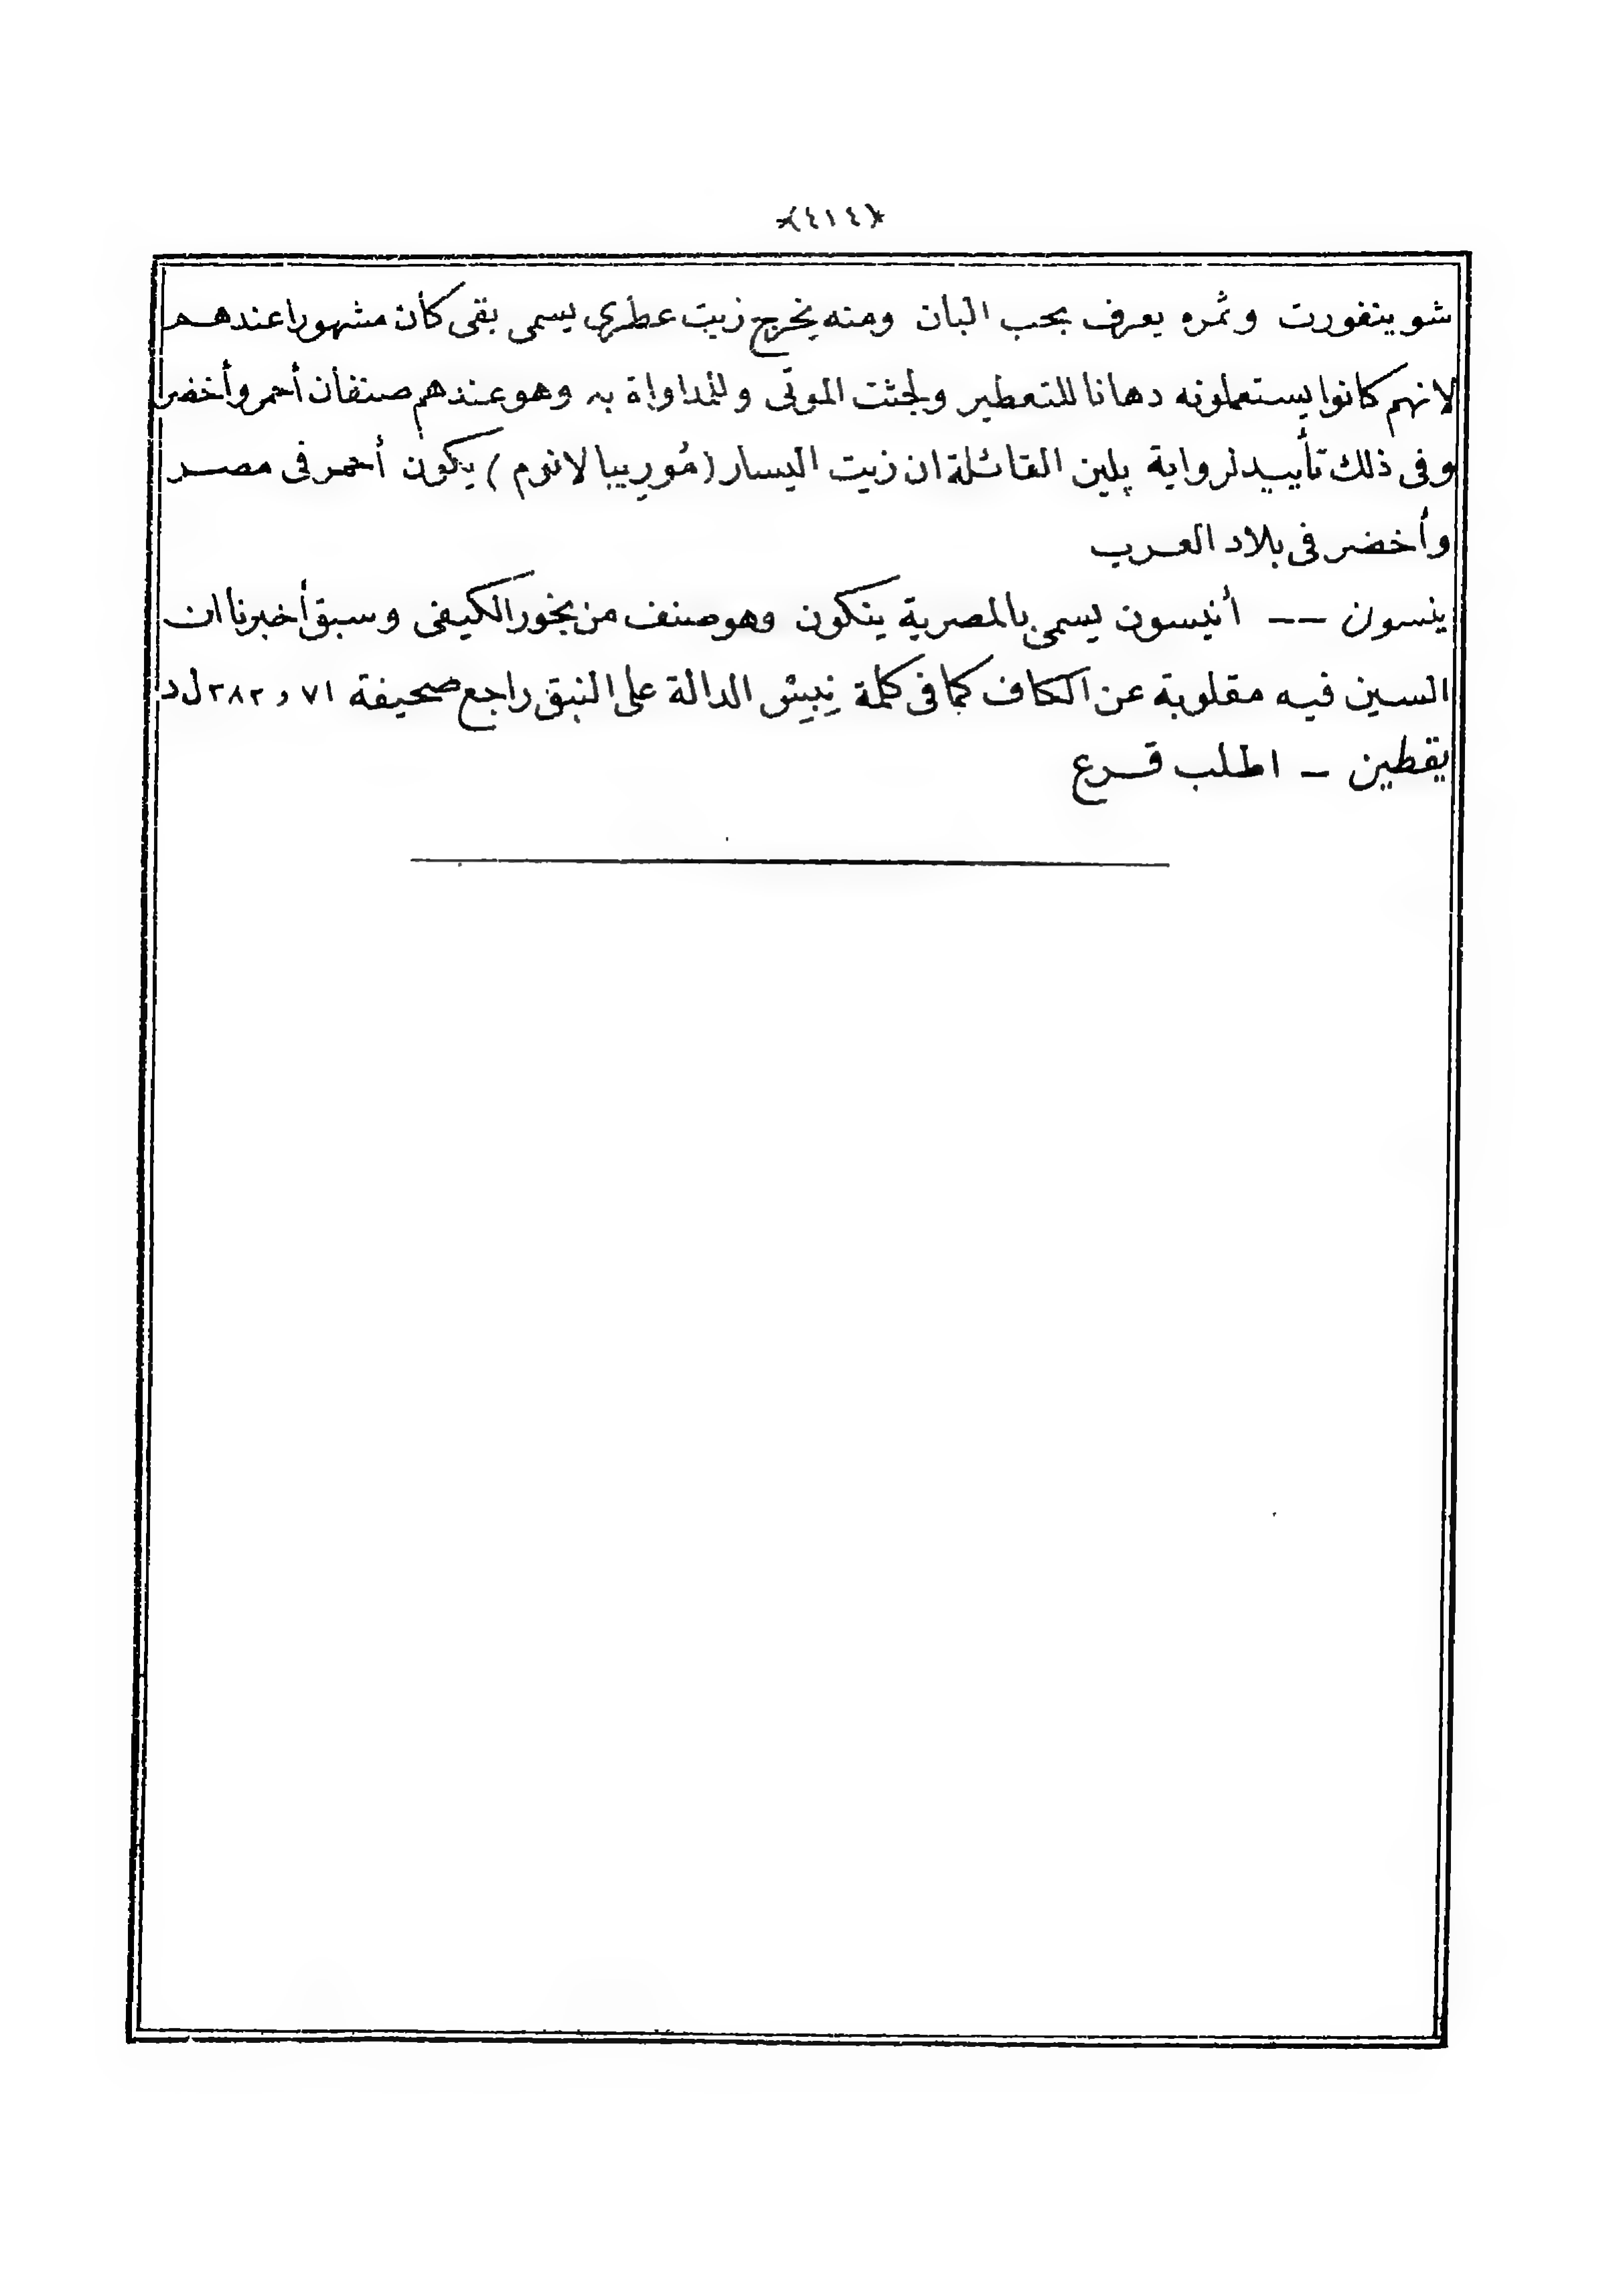 ﴿٤١٤﴾
شو ينفورت وثمره يعرف بحب البان ومنه يخرج زيت عطري يسمى بقى كان مشهورا عندهم
لانهم كانوا يستعملونه دهانا للتعطير ولجثث الموتى وللمداواة به وهو عندهم صنفان أحمر وأخضر
وفى ذلك تأييد لرواية پلين القائلة ان زيت اليسار (مُورِيبا لانوم) يكون أحمر فى مصر
وأخضر فى بلاد العرب
ينسون -- أنيسون يسمى بالمصرية ينكون وهو صنف من بخور الكيفى وسبق أخبرنا ان
السين فيه مقلوبة عن الكاف كما فى كلمة نِبِيش الدالة على النبق راجع صحيفة ٧١ و ٢٨٢ ل د
يقطين - اطلب قرع